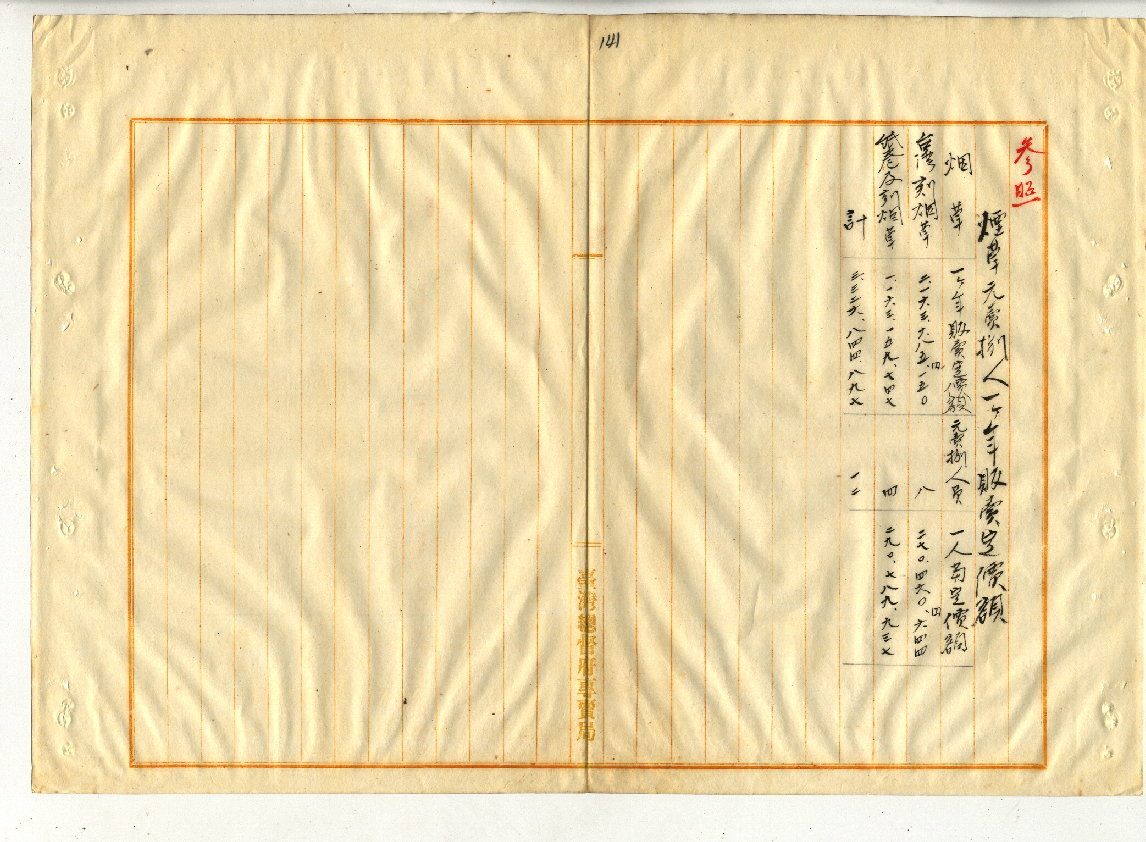 141
参照
煙草元賣捌人一ヶ年販賣定價額
烟草 一ヶ年販賣定價額 元賣捌人員 一人當定價額
臺湾刻烟草 二、一六三、六八五、円一五〇 八 二七〇、四六〇、円六四四
紙巻及刻烟草 一、一六三、一五九、七四七 四 二九〇、七八九、九三七
計 三、三二六、八四四、八九七 一二
臺灣總督府專賣局